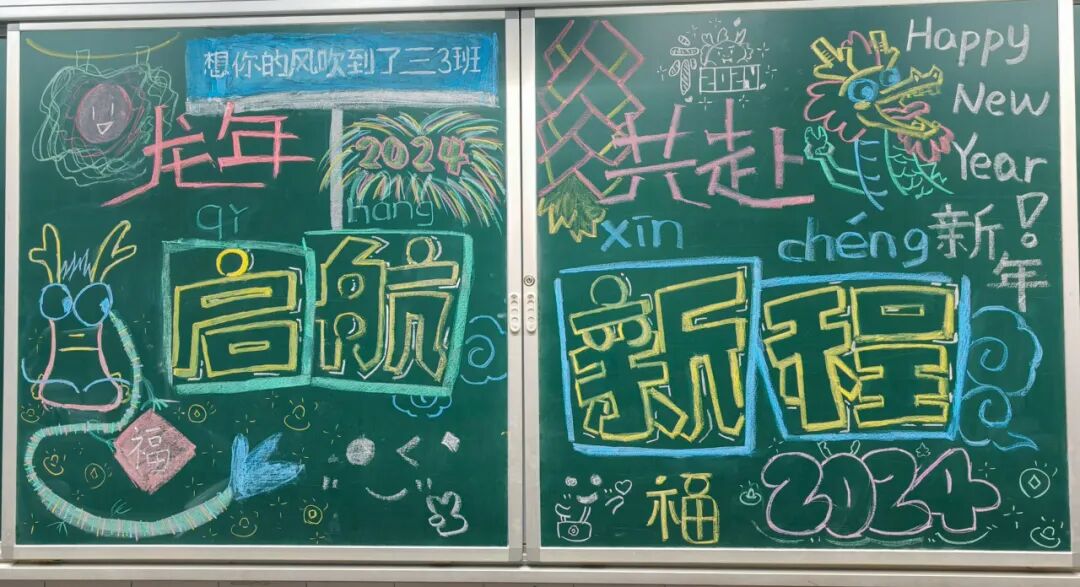 想你的风吹到了三3班
龙年
2024
qǐ háng
启航
福
2024
共赴
Happy
New
Year
!
xīn chéng
新年
新程
福
2024